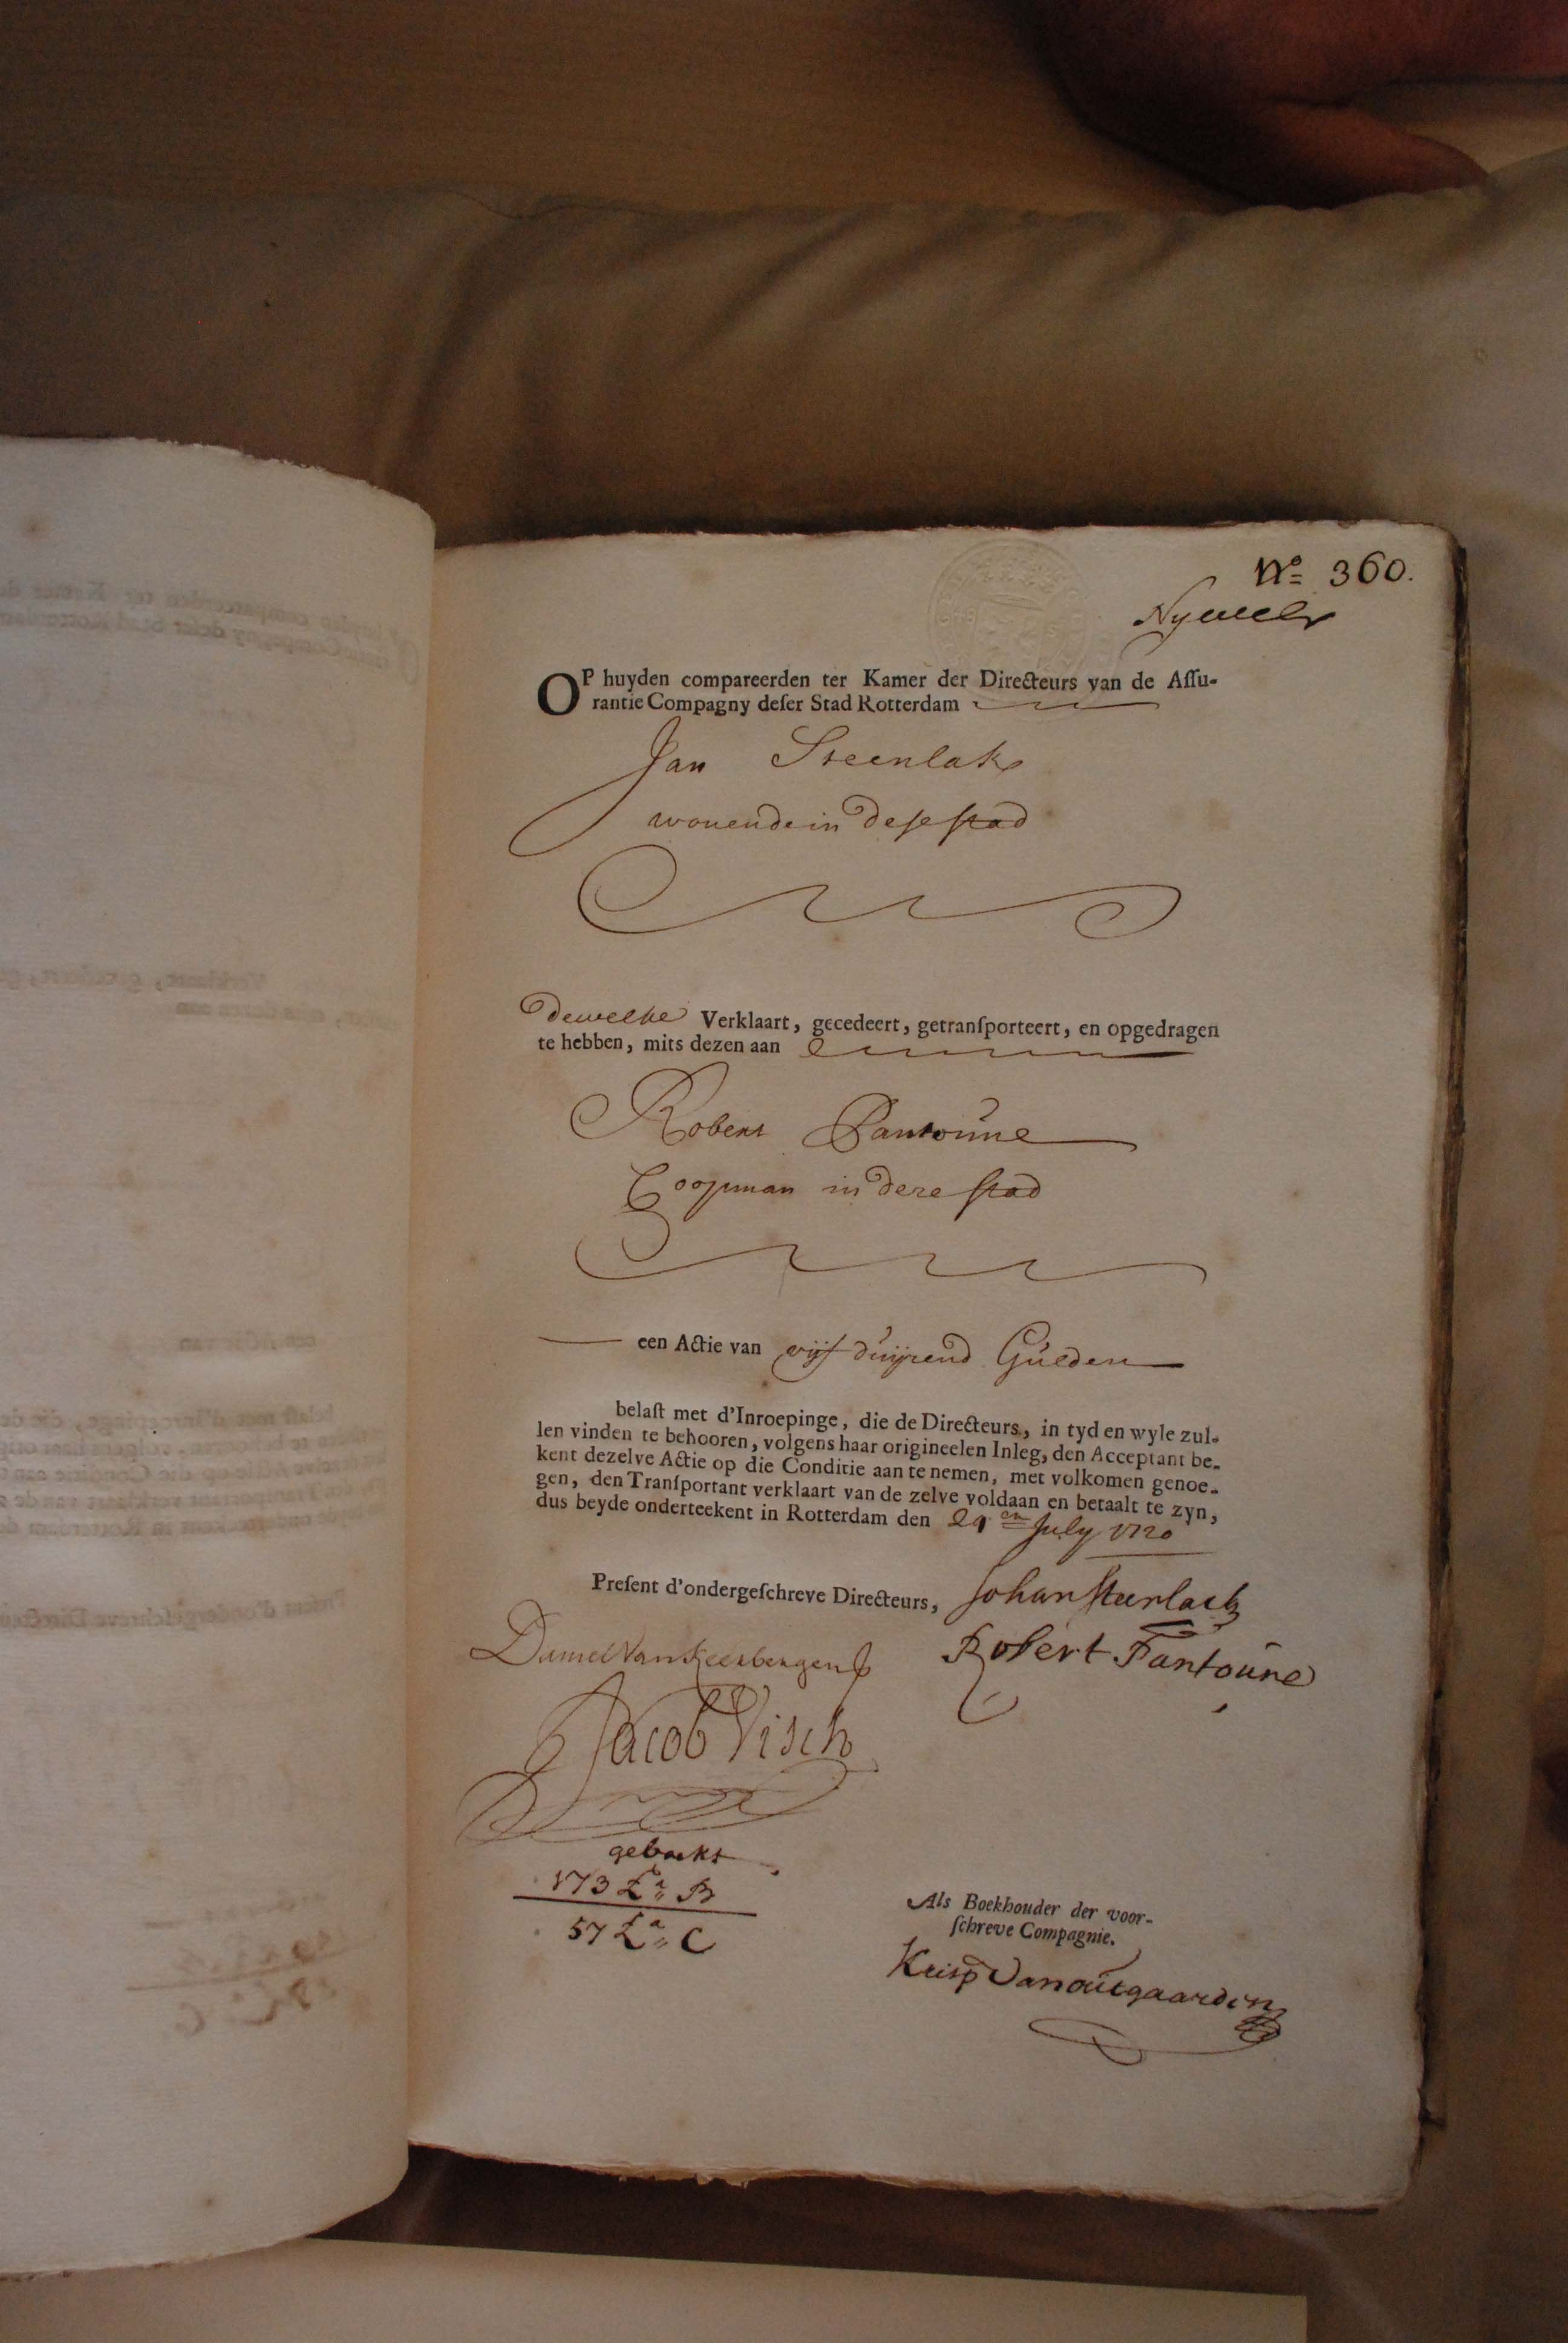 No 360.
OP huyden compareerden ter Kamer der Directeurs van de Aſſu-
rantie Compagny deſer Stad Rotterdam
Jan Steenlak
wonende in deſe ſtad
dewelke Verklaart, gecedeert, getranſporteert, en opgedragen
te hebben, mits dezen aan
Robert Fantoúne
Coopman in deze ſtad
een Actie van vijf duijzend Gúlden
belaſt met d'Inroepinge, die de Directeurs, in tyd en wyle zul-
len vinden te behooren, volgens haar origineelen Inleg, den Acceptant be-
kent dezelve Actie op die Conditie aan te nemen, met volkomen genoe-
gen, den Tranſportant verklaart van de zelve voldaan en betaalt te zyn,
dus beyde onderteekent in Rotterdam den 29en July 1720
Preſent d'ondergeſchreve Directeurs, Johan Steenlack
Daniel Van Keerbergen Robert Fantoúne
Jacob Visch
geboekt
173 La B
57 La C
Als Boekhouder der voor-
ſchreve Compagnie.
Krisp Van outgaarden